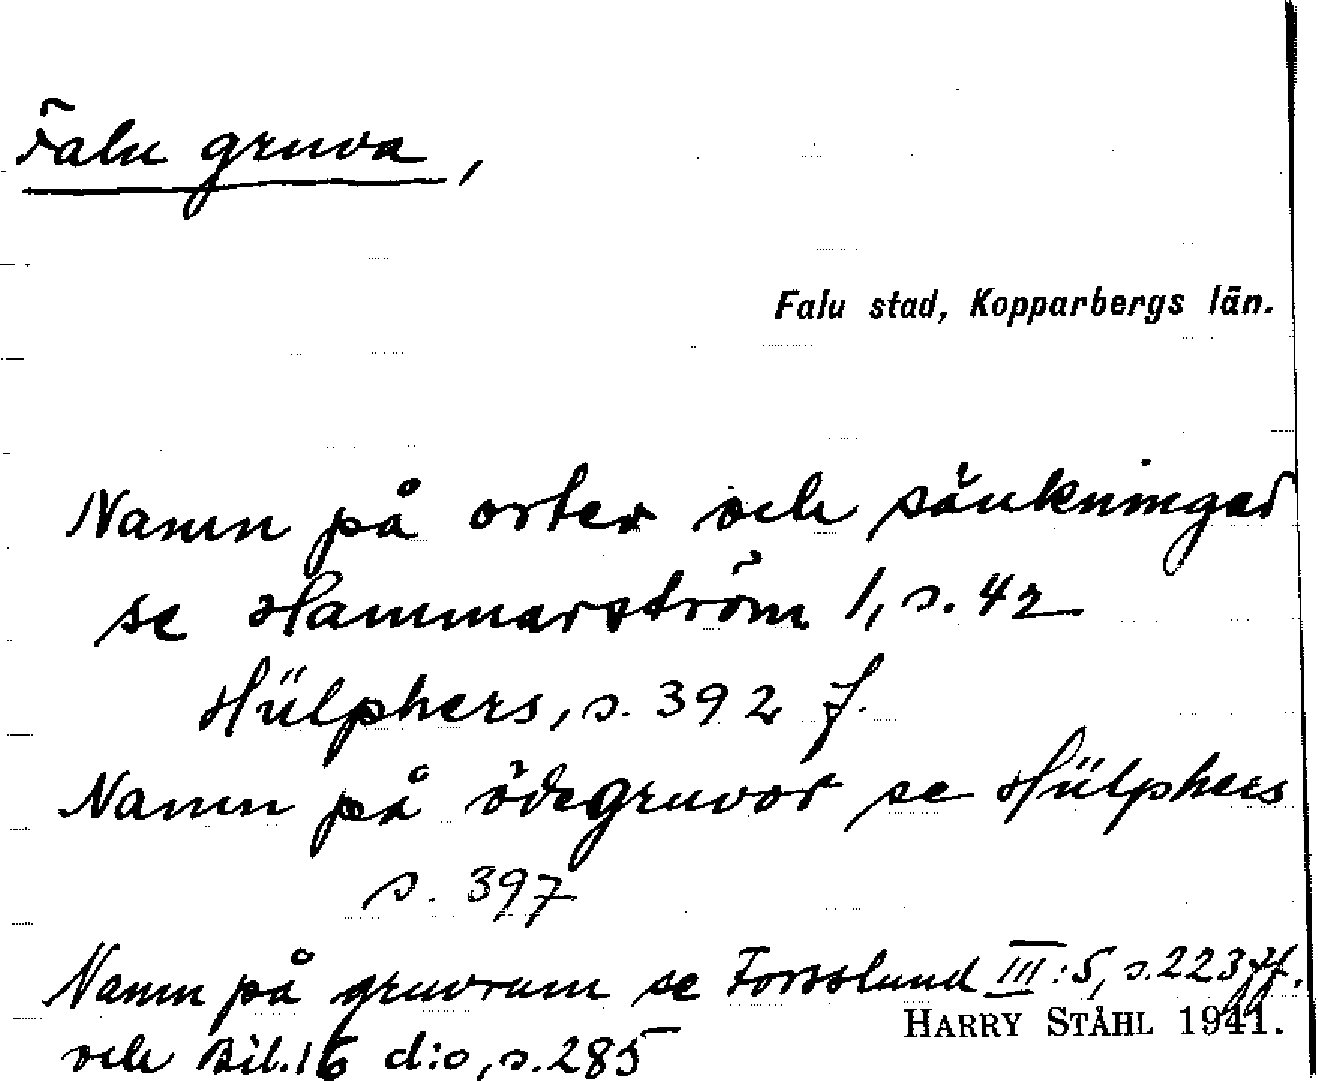 Falu gruva,
Falu stad, Kopparbergs län.
Namn på orter och sänkningar
se Hammarström 1, s. 42
Hülphers, s. 392 f.
Namn på ödegruvor se Hülphers
s. 397
Namn på gruvrum se Forsslund III:5, s. 223 ff.
HARRY STÅHL 1941.
och Bil. 16 d:o, s. 285